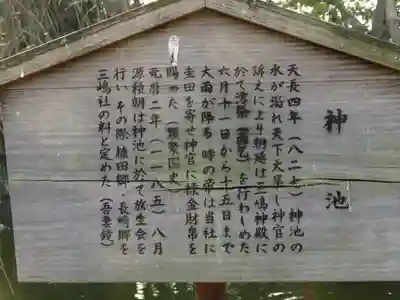 神池
天長四年（八二七）神池の
水が涸れ天下大旱し神官の
訴えにより朝廷は三嶋神殿に
於て澪祭（雨乞）を行わしめた
六月十一日から十五日まで
大雨が降る 時の帝は当社に
圭田を寄せ神官に禄金財帛を
賜った（類聚国史）
元暦二年（一一八五）八月
源頼朝は神池に於て放生会を
行い その際糠田郷 長崎郷を
三嶋社の料と定めた（吾妻鏡）